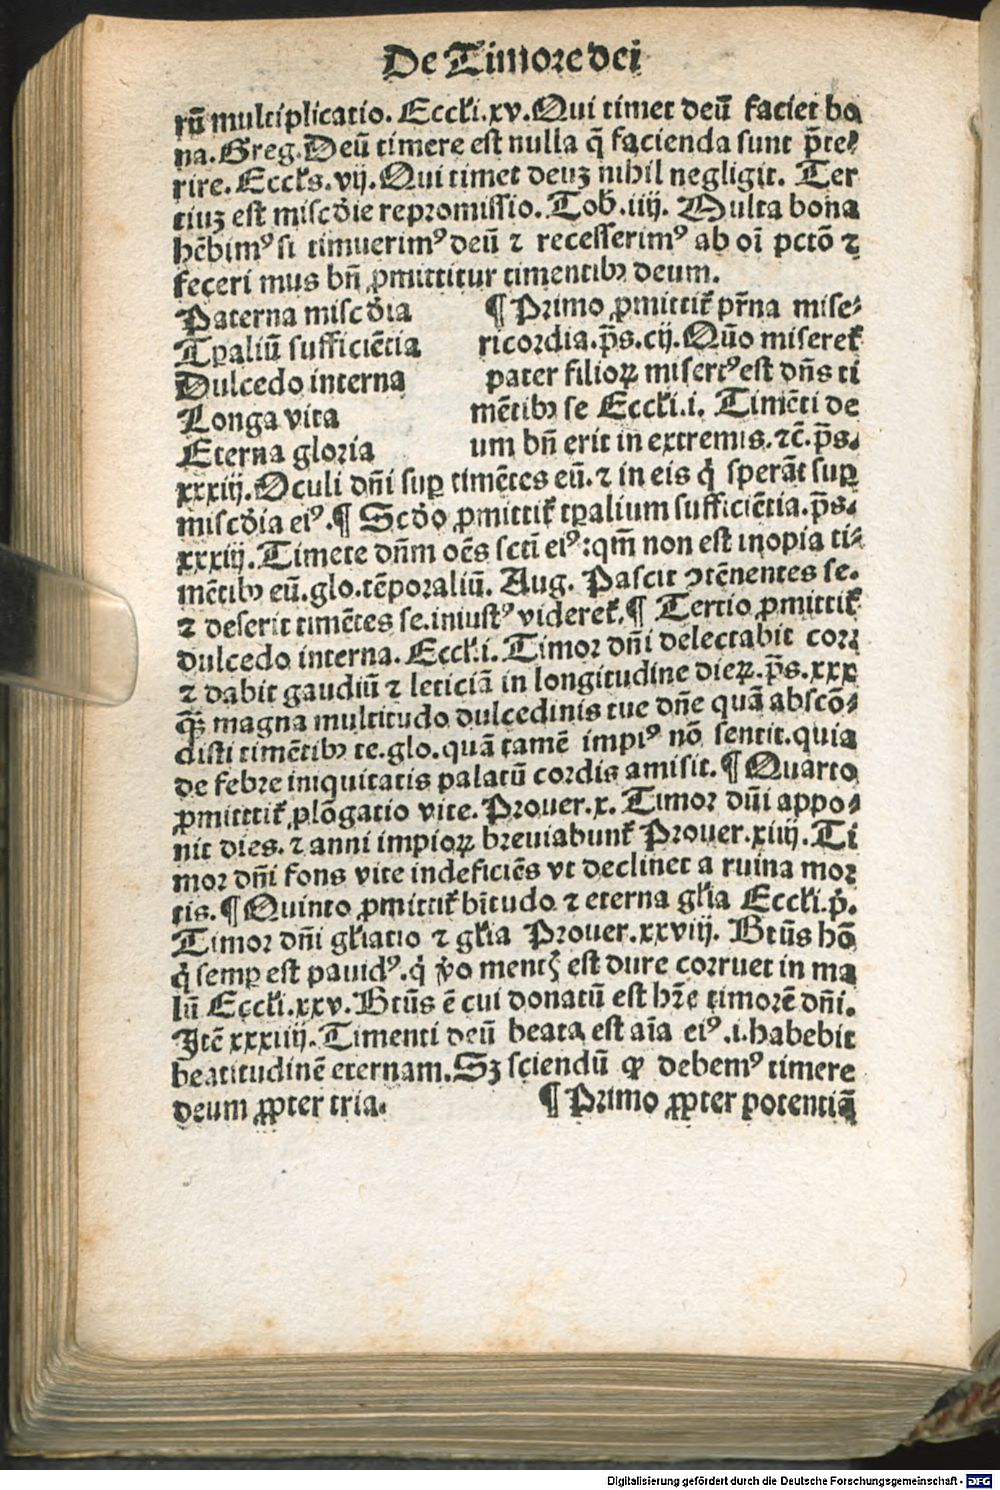 De Timore dei
rū multiplicatio. Eccłi.xv. Qui timet deū faciet bo
na. Greg. Deū timere est nulla q̄ facienda sunt p̄te⸗
rire. Eccłs.vij. Qui timet deuʒ nihil negligit. Ter
tiuʒ est misc̄die repromissio. Tob̄.iiij. Multa bona
hēbimꝰ si timuerimꝰ deū ⁊ recesserimꝰ ab oī pctō ⁊
feceri mus bn̄ ꝓmittitur timentibꝫ deum.
Paterna misc̄dia ¶ Primo ꝓmittit᷑ pr̄na mise⸗
Tꝑaliū sufficiētia ricordia.p̄s.cij. Quō miseret᷑
Dulcedo interna pater filioꝝ misertꝰ est dn̄s ti
Longa vita mētibꝫ se Eccłi.i. Timēti de
Eterna gloria um bn̄ erit in extremis.⁊c̄.p̄s.
xxxiij. Oculi dn̄i suꝑ timētes eū.⁊ in eis q̇ sperāt suꝑ
misc̄dia eiꝰ.¶ Scd̄o ꝓmittit᷑ tꝑalium sufficiētia.p̄s.
xxxiij. Timete dn̄m oēs sctī eiꝰ:qm̄ non est inopia ti⸗
mētibꝫ eū.glo.tēporaliū. Aug. Pascit ꝯtēnentes se.
⁊ deserit timētes se.iniustꝰ videret᷑.¶ Tertio ꝓmittit᷑
dulcedo interna. Eccłi.i. Timor dn̄i delectabit cor⸗
⁊ dabit gaudiū ⁊ leticiā in longitudine dieꝝ.p̄s.xxx
q̄ꝫ magna multitudo dulcedinis tue dn̄e quā abscō⸗
disti timētibꝫ te.glo.quā tamē impiꝰ nō sentit.quia
de febre iniquitatis palatū cordis amisit.¶ Quarto
ꝓmittit᷑ ꝓlōgatio vite. Prouer.x. Timor dn̄i appo⸗
nit dies.⁊ anni impioꝝ breviabunt᷑ Prouer.xiiij. Ti
mor dn̄i fons vite indeficiēs vt declinet a ruina mor
tis.¶ Quinto ꝓmittit᷑ bītudo ⁊ eterna głia Eccłi.p̄.
Timor dn̄i głiatio ⁊ głia Prouer.xxviij. Btūs hō
q̇ semꝑ est pauidꝰ.q̇ v̄o mentꝭ est dure corruet in ma
lū Eccłi.xxv. Btūs ē cui donatū est hr̄e timorē dn̄i.
Itē xxxiiij. Timenti deū beata est aīa eiꝰ .i.habebit
beatitudinē eternam. Sʒ sciendū ꝙ debemꝰ timere
deum ꝓpter tria. ¶ Primo ꝓpter potentiā
Digitalisierung gefördert durch die Deutsche Forschungsgemeinschaft - DFG